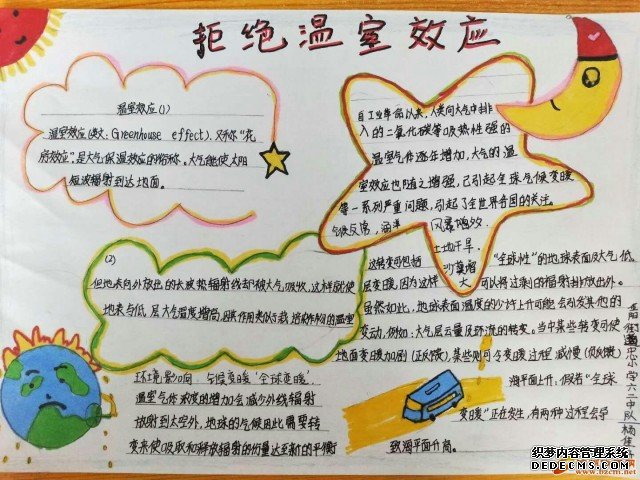 拒绝温室效应
温室效应(1)
温室效应(英文: Greenhouse effect),又称“花
房效应”,是大气保温效应的俗称。大气能使太阳
短波辐射到达地面。
自工业革命以来,人类向大气中排
入的二氧化碳等吸热性强的
温室气体逐年增加,大气的温
室效应也随之增强,己引起全球气候变暖
等一系列严重问题,引起了全世界各国的关注。
气候反常,海洋风暴增多
土地干旱,
沙漠增大
(2)
但地表向外放出的长波热辐射线却被大气吸收,这样就使
地表与低层大气温度增高,因其作用类似于栽培农作物的温室
这转变可包括“全球性”的地球表面及大气低
层变暖,因为这样可以将过剩的辐射排放出外。
虽然如此,地球表面温度的少许上升可能会引发其他的
变动,例如:大气层云量及环流的转变。当中某些转变可使
地面变暖加剧(正反馈),某些则可令变暖过程减慢(负反馈)
环境影响 气候变暖“全球变暖”.
温室气体浓度的增加会减少外线辐射
放射到太空外,地球的气候因此需要转
变来使吸取和释放辐射的份量达至新的平衡
海平面上升:假若“全球
变暖”正在发生,有两种过程会导
致海平面升高。
小学六二中队 杨佳
织梦内容管理系统
DEDECMS.COM
www.bzcm.net